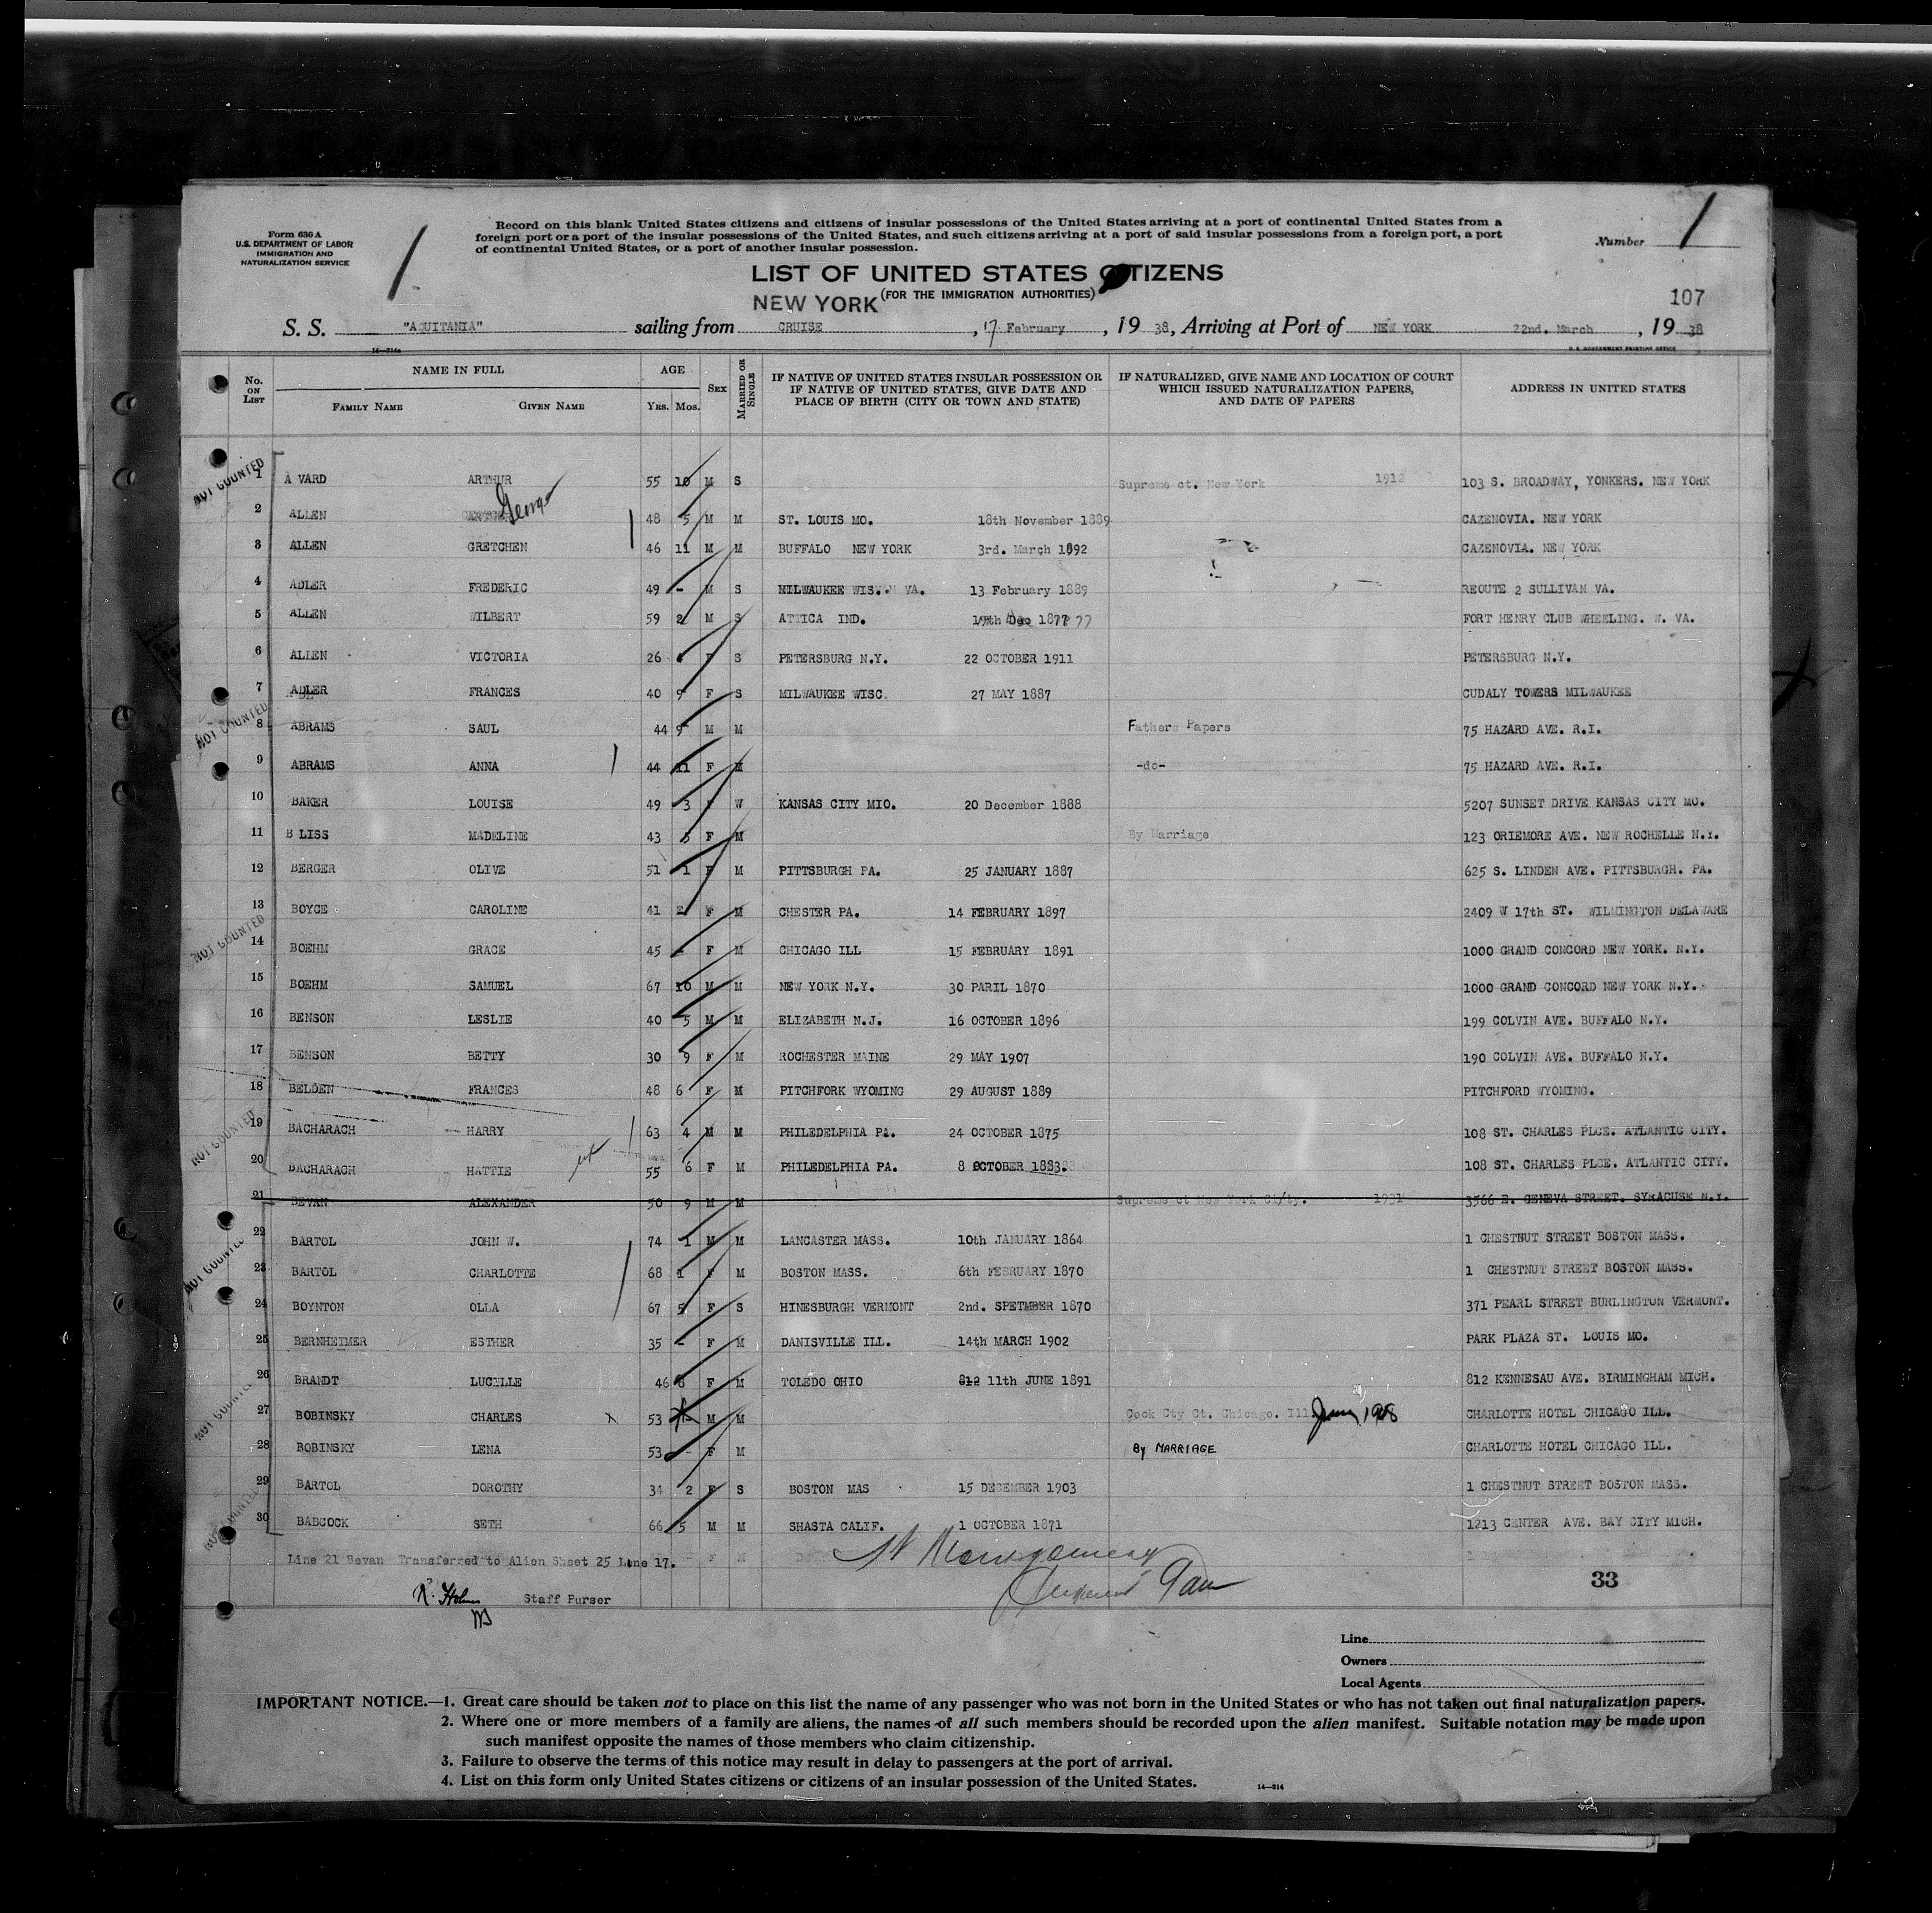 Form 630 A
U.S. DEPARTMENT OF LABOR
IMMIGRATION AND
NATURALIZATION SERVICE
1
Record on this blank United States citizens and citizens of insular possessions of the United States arriving at a port of continental United States from a
foreign port or a port of the insular possessions of the United States, and such citizens arriving at a port of said insular possessions from a foreign port, a port
of continental United States, or a port of another insular possession.
Number 1
LIST OF UNITED STATES CITIZENS
(FOR THE IMMIGRATION AUTHORITIES)
NEW YORK
107
S. S. "AQUITANIA" sailing from CRUISE, 17 February, 19 38, Arriving at Port of NEW YORK 22nd. March, 19 38
14—214a
U. S. GOVERNMENT PRINTING OFFICE
No. ON LIST
NAME IN FULL
FAMILY NAME GIVEN NAME
AGE
YRS. MOS.
SEX
MARRIED OR SINGLE
IF NATIVE OF UNITED STATES INSULAR POSSESSION OR
IF NATIVE OF UNITED STATES, GIVE DATE AND
PLACE OF BIRTH (CITY OR TOWN AND STATE)
IF NATURALIZED, GIVE NAME AND LOCATION OF COURT
WHICH ISSUED NATURALIZATION PAPERS,
AND DATE OF PAPERS
ADDRESS IN UNITED STATES
NOT COUNTED
1 A VARD ARTHUR 55 10 M S Supreme ct. New York 1912 103 S. BROADWAY, YONKERS. NEW YORK
2 ALLEN George 48 5 M M ST. LOUIS MO. 18th November 1889 CAZENOVIA. NEW YORK
3 ALLEN GRETCHEN 46 11 M M BUFFALO NEW YORK 3rd. March 1892 CAZENOVIA. NEW YORK
4 ADLER FREDERIC 49 - M S MILWAUKEE WIS. VA. 13 February 1889 REOUTE 2 SULLIVAN VA.
5 ALLEN WILBERT 59 2 M S ATTICA IND. Dec 1877 77 FORT HENRY CLUB WHEELING. W. VA.
6 ALLEN VICTORIA 26 F S PETERSBURG N.Y. 22 OCTOBER 1911 PETERSBURG N.Y.
7 ADLER FRANCES 40 9 F S MILWAUKEE WISC. 27 MAY 1887 CUDALY TOWERS MILWAUKEE
NOT COUNTED
8 ABRAMS SAUL 44 9 M M Fathers Papers 75 HAZARD AVE. R.I.
9 ABRAMS ANNA 44 11 F M -do- 75 HAZARD AVE. R.I.
10 BAKER LOUISE 49 3 F W KANSAS CITY MIO. 20 December 1888 5207 SUNSET DRIVE KANSAS CITY MO.
11 B LISS MADELINE 43 5 F M By Marriage 123 ORIEMORE AVE. NEW ROCHELLE N.Y.
12 BERGER OLIVE 51 1 F M PITTSBURGH PA. 25 JANUARY 1887 625 S. LINDEN AVE. PITTSBURGH. PA.
13 BOYCE CAROLINE 41 F M CHESTER PA. 14 FEBRUARY 1897 2409 W 17th ST. WILMINGTON DELAWARE
NOT COUNTED
14 BOEHM GRACE 45 - F M CHICAGO ILL 15 FEBRUARY 1891 1000 GRAND CONCORD NEW YORK. N.Y.
15 BOEHM SAMUEL 67 10 M M NEW YORK N.Y. 30 PARIL 1870 1000 GRAND CONCORD NEW YORK N.Y.
16 BENSON LESLIE 40 5 M M ELIZABETH N.J. 16 OCTOBER 1896 199 COLVIN AVE. BUFFALO N.Y.
17 BENSON BETTY 30 9 F M ROCHESTER MAINE 29 MAY 1907 190 COLVIN AVE. BUFFALO N.Y.
18 BELDEN FRANCES 48 6 F M PITCHFORK WYOMING 29 AUGUST 1889 PITCHFORD WYOMING.
NOT COUNTED
19 BACHARACH HARRY 63 4 M M PHILEDELPHIA PA. 24 OCTOBER 1875 108 ST. CHARLES PLCE. ATLANTIC CITY.
20 BACHARACH HATTIE ux 55 6 F M PHILEDELPHIA PA. 8 OCTOBER 1883. 108 ST. CHARLES PLCE. ATLANTIC CITY.
21 BEVAN ALEXANDER 50 9 M M Supreme ct New York Ct/ty. 1931 3566 E. GENEVA STREET. SYRACUSE N.Y.
22 BARTOL JOHN W. 74 1 M M LANCASTER MASS. 10th JANUARY 1864 1 CHESTNUT STREET BOSTON MASS.
NOT COUNTED
23 BARTOL CHARLOTTE 68 1 F M BOSTON MASS. 6th FEBRUARY 1870 1 CHESTNUT STREET BOSTON MASS.
24 BOYNTON OLLA 67 5 F S HINESBURGH VERMONT 2nd. SPETMBER 1870 371 PEARL STREET BURLINGTON VERMONT.
25 BERNHEIMER ESTHER 35 - F M DANISVILLE ILL. 14th MARCH 1902 PARK PLAZA ST. LOUIS MO.
26 BRANDT LUCILLE 46 8 F M TOLEDO OHIO 812 11th JUNE 1891 812 KENNESAU AVE. BIRMINGHAM MICH.
NOT COUNTED
27 BOBINSKY CHARLES x 53 - M M Cook Cty Ct. Chicago. Ill 1908 CHARLOTTE HOTEL CHICAGO ILL.
28 BOBINSKY LENA 53 - F M By MARRIAGE CHARLOTTE HOTEL CHICAGO ILL.
29 BARTOL DOROTHY 34 2 F S BOSTON MAS 15 DECEMBER 1903 1 CHESTNUT STREET BOSTON MASS.
NOT COUNTED
30 BABCOCK SETH 66 5 M M SHASTA CALIF. 1 OCTOBER 1871 1213 CENTER AVE. BAY CITY MICH.
Line 21 Bevan Transferred to Alien Sheet 25 Line 17.
Montgomery
33
R. Holmes Staff Purser
Line
Owners
Local Agents
IMPORTANT NOTICE.—1. Great care should be taken not to place on this list the name of any passenger who was not born in the United States or who has not taken out final naturalization papers.
2. Where one or more members of a family are aliens, the names of all such members should be recorded upon the alien manifest. Suitable notation may be made upon
such manifest opposite the names of those members who claim citizenship.
3. Failure to observe the terms of this notice may result in delay to passengers at the port of arrival.
4. List on this form only United States citizens or citizens of an insular possession of the United States.
14—214